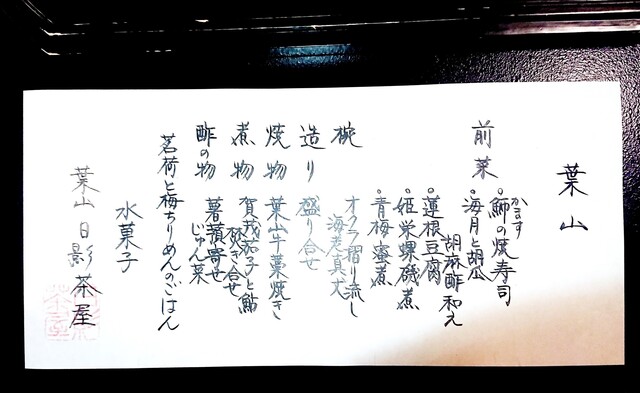 葉山
前菜
かます
・鰤の焼寿司
・海月と胡瓜
胡麻酢和え
・蓮根豆腐
・姫栄螺磯煮
・青梅蜜煮
椀 オクラ摺り流し
海老真丈
造り 盛り合せ
焼物 葉山牛藁焼き
煮物 賀茂茄子と鮎
炊き合せ
酢の物 薯蕷寄せ
じゅん菜
茗荷と梅ちりめんのごはん
水菓子
葉山 日影茶屋